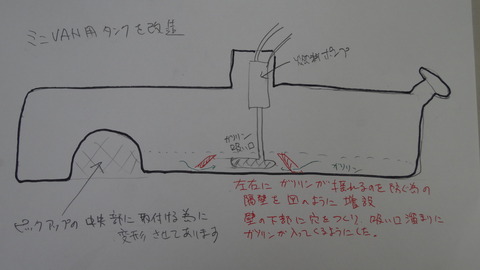 ミニVAN用タンクを改造
燃料ポンプ
ガソリン
吸い口
ガソリン
左右にガソリンが揺れるのを防ぐ為の
隔壁を図のように増設
壁の下部に穴をつくり 吸い口溜まりに
ガソリンが入ってくるようにした。
ピックアップの中央部に取付ける為に
変形させてあります